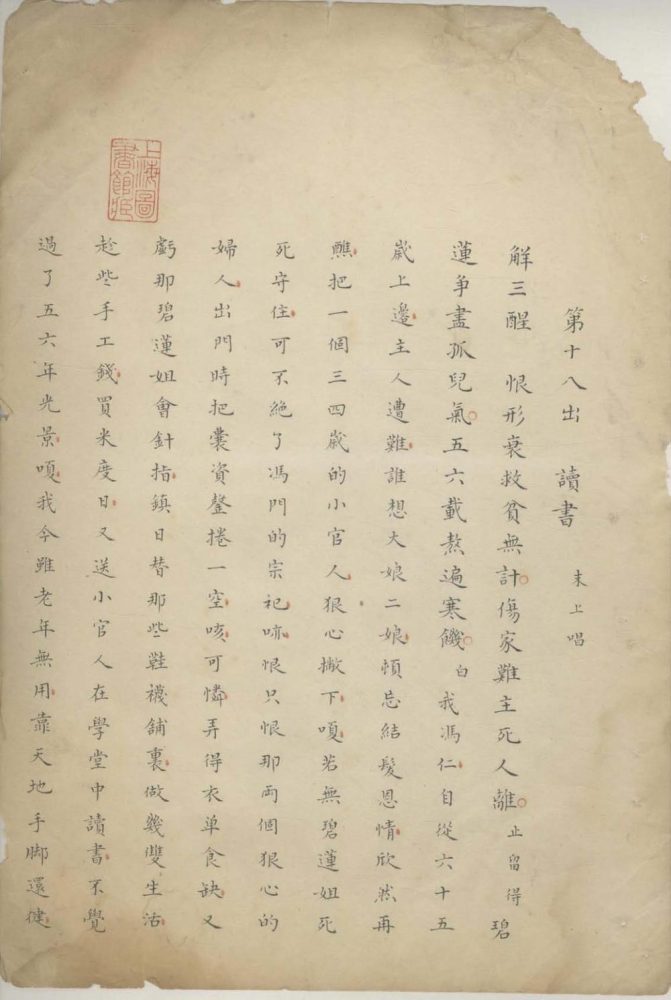 第十八出 讀書 末上唱
解三酲 恨形衰救貧無計傷家難主死人離止留得碧
蓮爭盡孤兒氣五六載熬遍寒饑 白 我馮仁自從六十五
歲上邊主人遭難誰想大娘二娘頓忘結髮恩情欣然再
醮把一個三四歲的小官人狠心撇下嗄若無碧蓮姐死
死守住可不絶了馮門的宗祀咳恨只恨那兩個狠心的
婦人出門時把囊資罄捲一空咳可憐弄得衣單食缺又
虧那碧蓮姐會針指鎮日替那些鞋襪舖裏做幾雙生活
趁些手工錢買米度日又送小官人在學堂中讀書不覺
過了五六年光景嗄我今雖老年無用靠天地手脚還健
上海圖書館藏